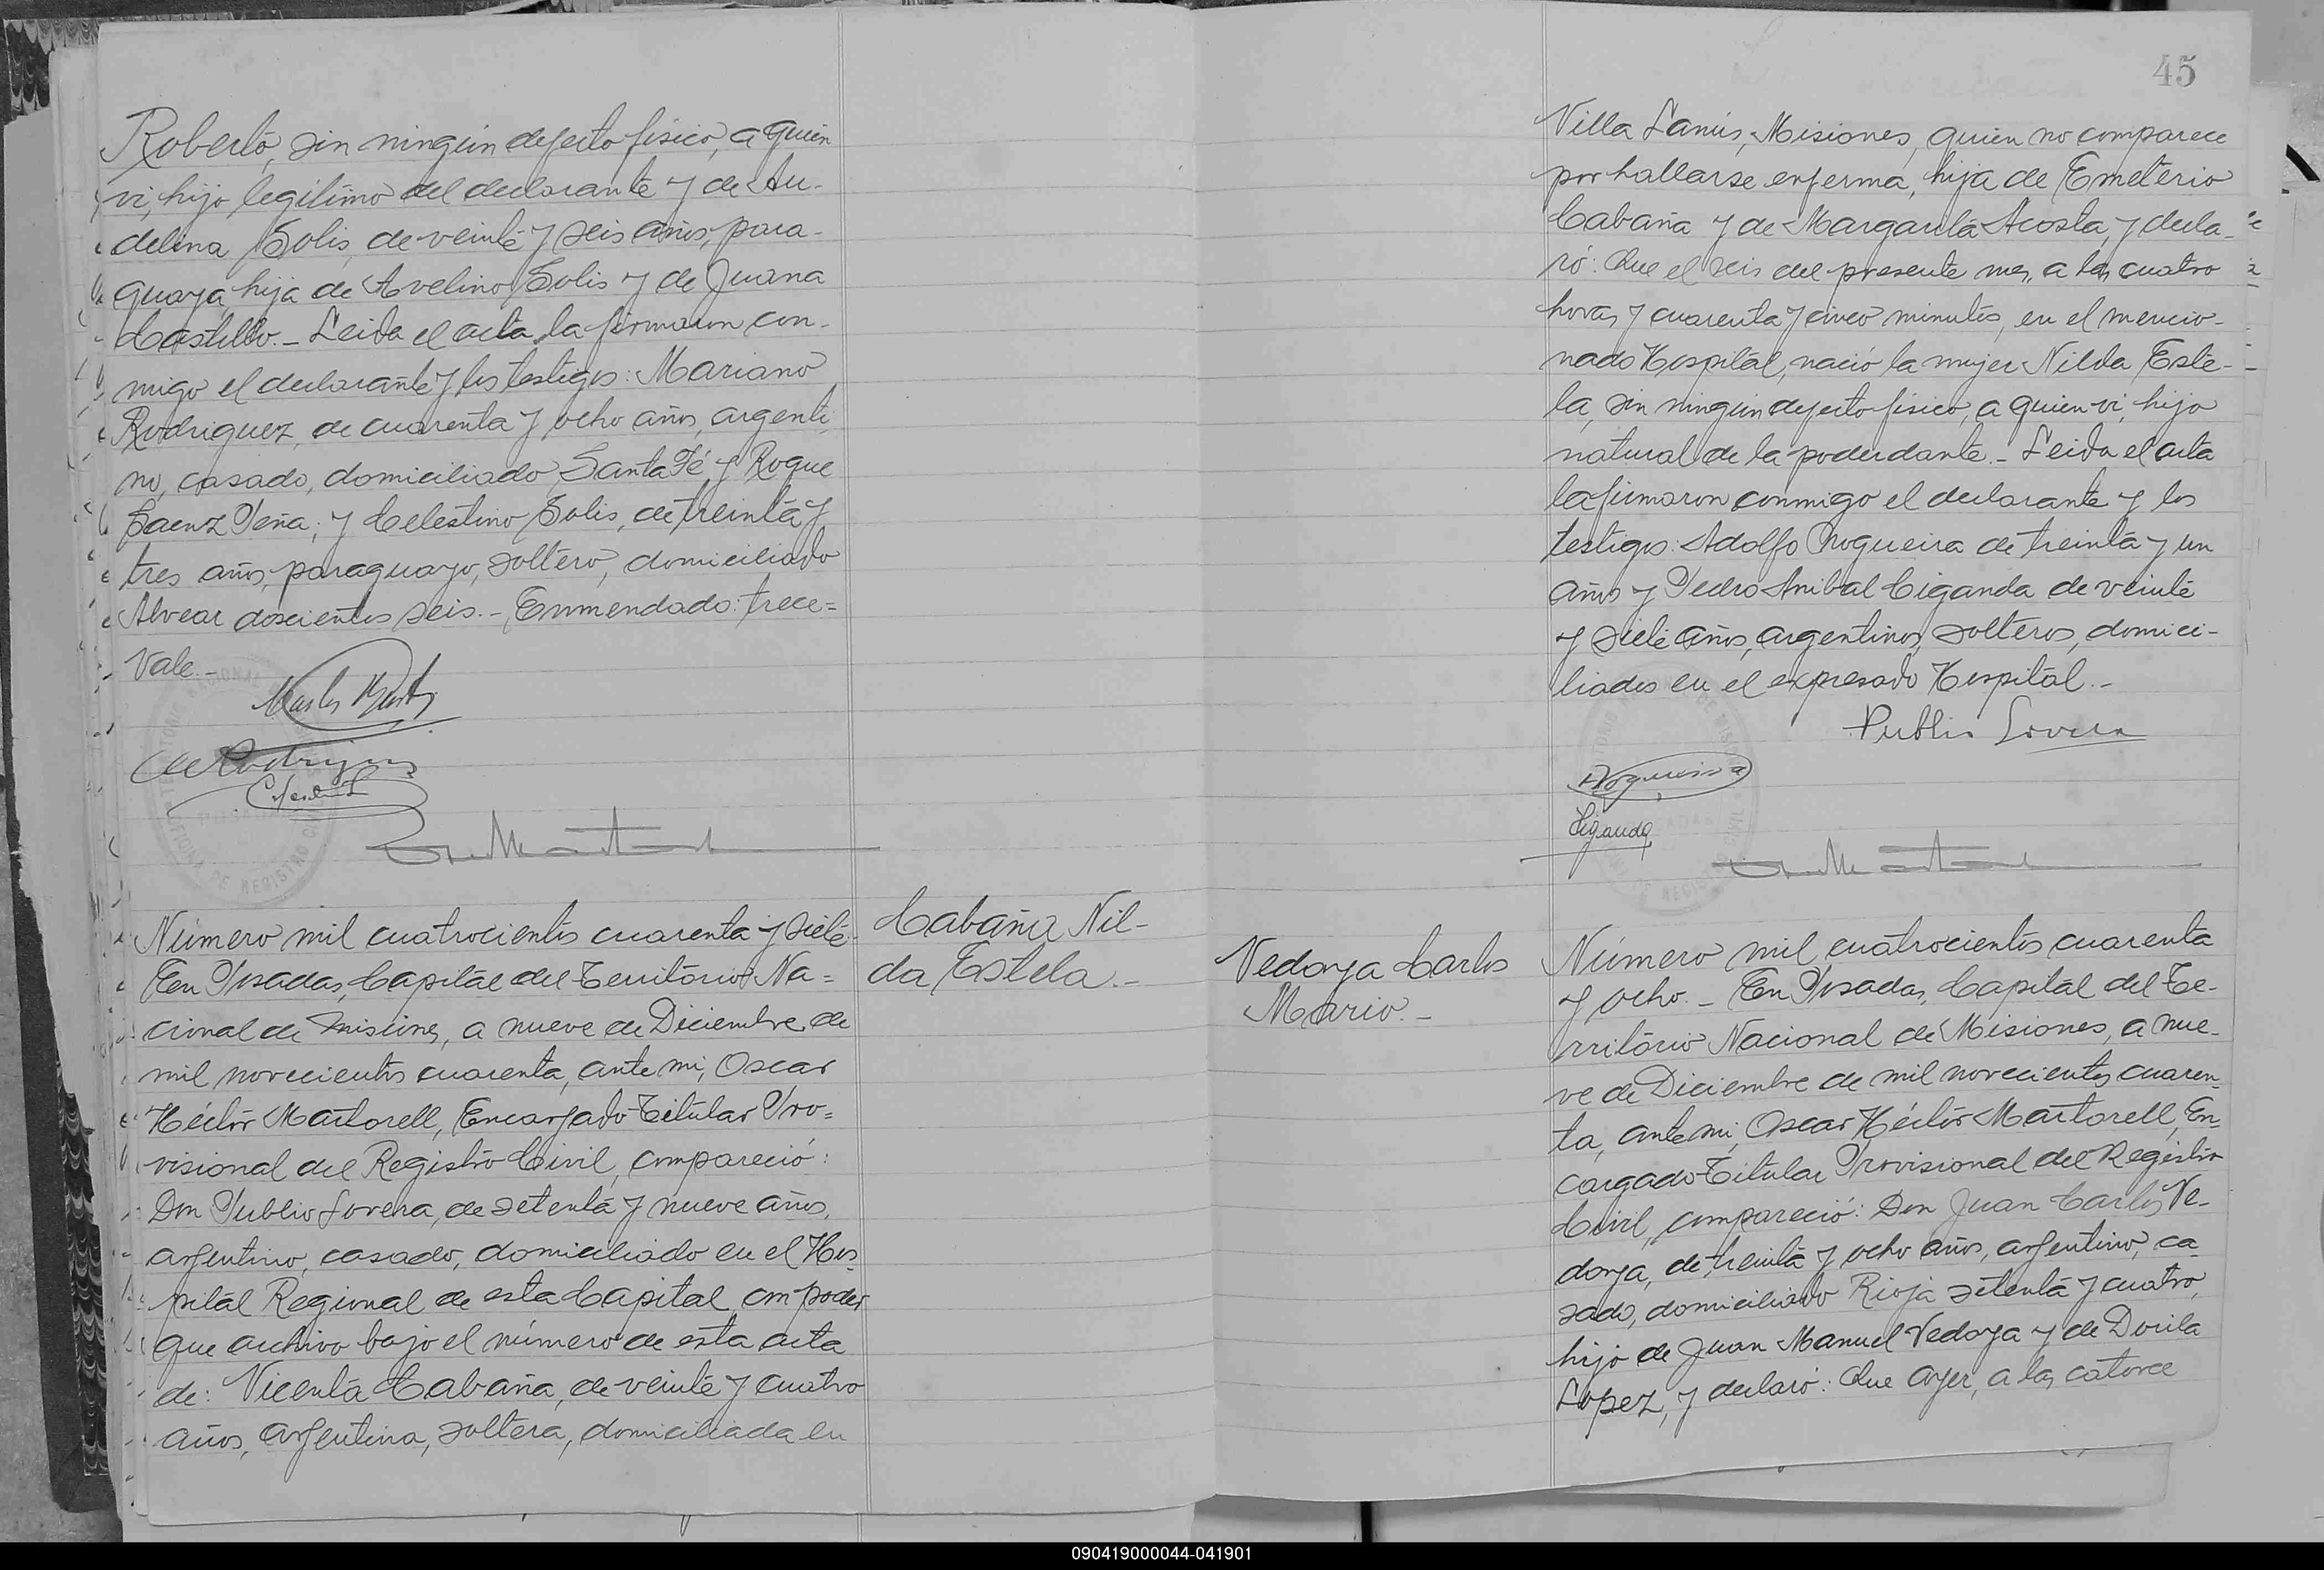 Roberto, sin ningún defecto físico, a quien
vi, hijo legítimo del declarante y de Au-
delina Solis, de veinte y seis años, para-
guaya, hija de Avelino Solis y de Juana
Castillo.- Leida el acta, la firmaron con-
migo el declarante y los testigos: Mariano
Rodriguez, de cuarenta y ocho años, argenti-
no, casado, domiciliado Santa Fé y Roque
Saenz Peña; y Celestino Solis, de treinta y
tres años, paraguayo, soltero, domiciliado
Alvear doscientos seis.- Enmendado: trece=
Vale.-
Número mil cuatrocientos cuarenta y siete.
En Posadas, Capital del Territorio Na=
cional de Misiones, a nueve de Diciembre de
mil novecientos cuarenta, ante mi, Oscar
Héctor Martorell, Encargado Titular Pro=
visional del Registro Civil, compareció:
Don Publio Lovera, de setenta y nueve años,
argentino, casado, domiciliado en el Hos-
pital Regional de esta Capital, con poder
que archivo bajo el número de esta acta
de: Vicenta Cabaña, de veinte y cuatro
años, argentina, soltera, domiciliada en
Cabaña Nil-
da Estela.-
45
Villa Lanús, Misiones, quien no comparece
por hallarse enferma, hija de Emeterio
Cabaña y de Margarita Acosta, y decla-
ró: Que el seis del presente mes, a las cuatro
horas y cuarenta y cinco minutos, en el mencio-
nado Hospital, nació la mujer Nilda Este-
la, sin ningún defecto físico, a quien vi, hija
natural de la poderdante.- Leida el acta
la firmaron conmigo el declarante y los
testigos: Adolfo Nogueira de treinta y un
años y Pedro Anibal Ciganda de veinte
y siete años, argentinos, solteros, domici-
liados en el expresado Hospital.-
Publio Lovera
ANogueira
Ciganda
Vedoya Carlos
Mario.-
Número mil cuatrocientos cuarenta
y ocho.- En Posadas, Capital del Te-
rritorio Nacional de Misiones, a nue-
ve de Diciembre de mil novecientos cuaren-
ta, ante mi, Oscar Héctor Martorell, En-
cargado Titular Provisional del Registro
Civil, compareció: Don Juan Carlos Ve-
doya, de treinta y ocho años, argentino, ca-
sado, domiciliado Rioja setenta y cuatro,
hijo de Juan Manuel Vedoya y de Dorila
Lopez, y declaró: Que ayer, a las catorce
090419000044-041901